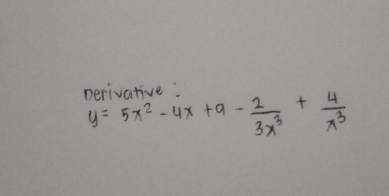 Derivative :
y = 5x² - 4x + 9 - 2/3x³ + 4/x³